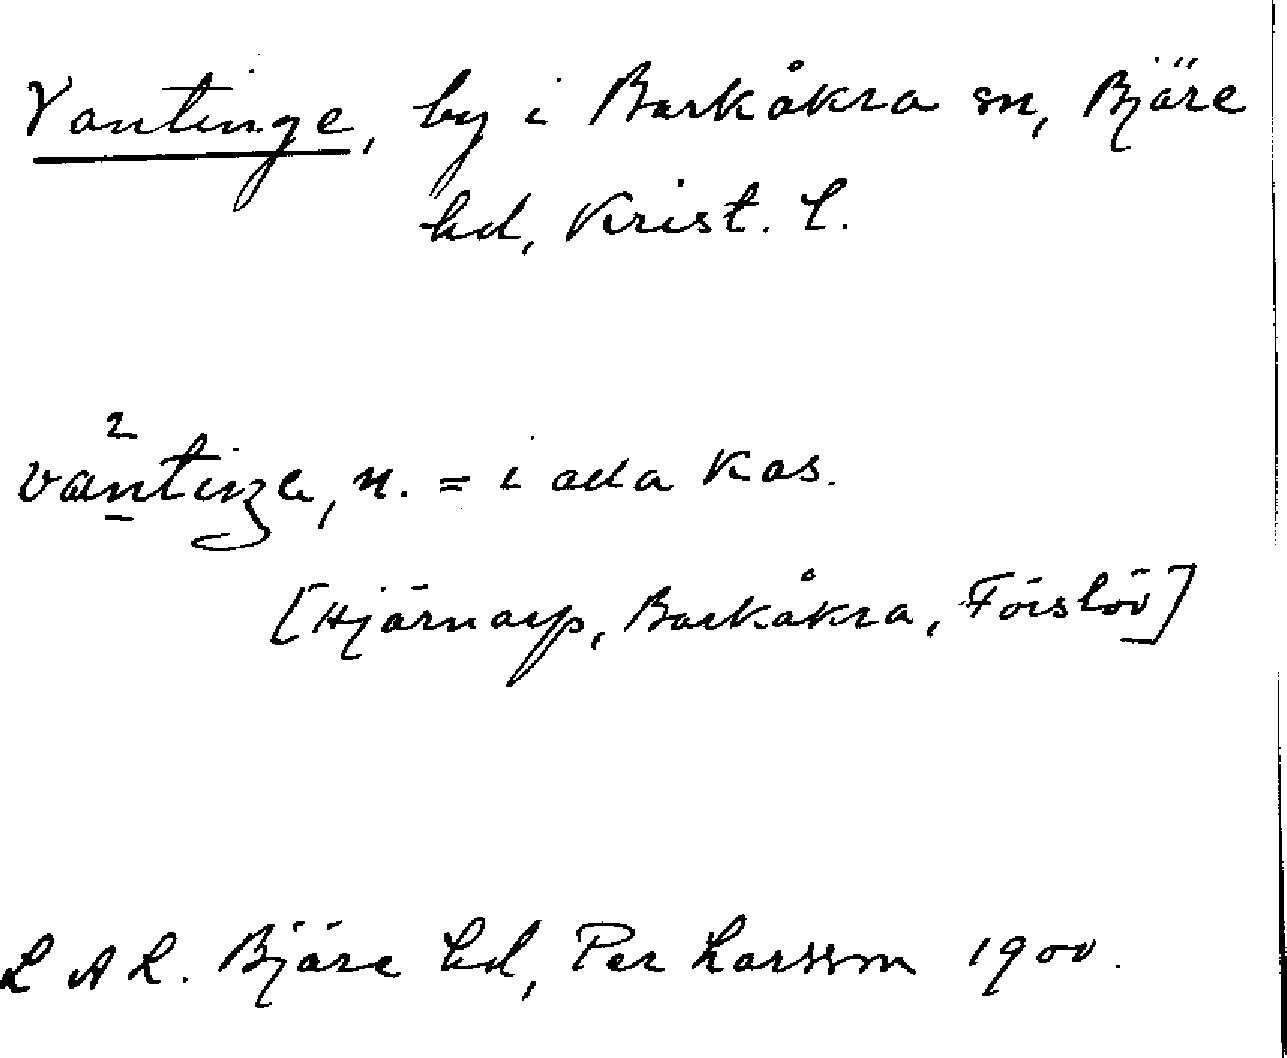 Vantinge, by i Barkåkra sn, Bjäre
hd, Krist. L.
2
vantiŋe, n. = i ada kas.
[Hjärnarp, Barkåkra, Förslöv]
L A L. Bjäre hd, Per Larsson 1900.